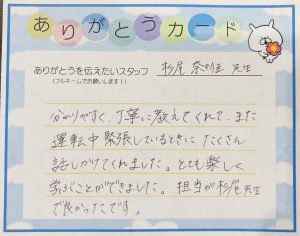 ありがとうカード
ありがとうを伝えたいスタッフ 杉尾 先生
(フルネームでお願いします!)
分かりやすく、丁寧に教えてくれて、また
運転中緊張しているときにたくさん
話しかけてくれました。とても楽しく
学ぶことができました。担当が杉尾先生
で良かったです。